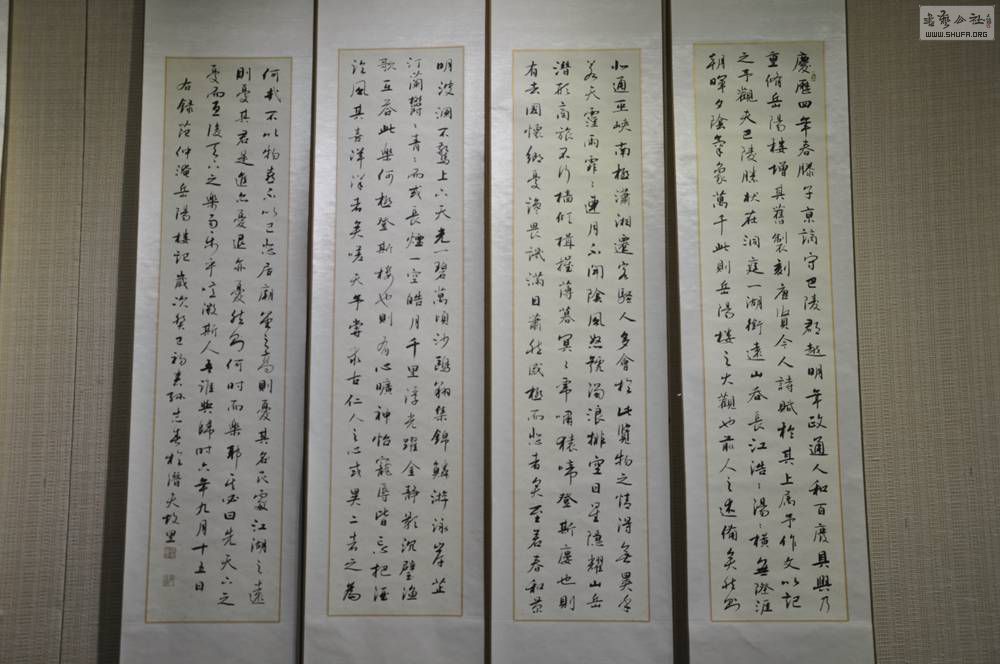 慶曆四年春滕子京謫守巴陵郡越明年政通人和百廢具興乃
重脩岳陽樓增其舊製刻唐賢今人詩賦於其上屬予作文以記
之予觀夫巴陵勝狀在洞庭一湖銜遠山吞長江浩〻湯〻橫無際涯
朝暉夕陰氣象萬千此則岳陽樓之大觀也前人之述備矣然則
北通巫峽南極瀟湘遷客騷人多會於此覽物之情得無異乎
若夫霪雨霏〻連月不開陰風怒號濁浪排空日星隱耀山岳
潛形商旅不行檣傾楫摧薄暮冥〻虎嘯猿啼登斯樓也則
有去國懷鄉憂讒畏譏滿目蕭然感極而悲者矣至若春和景
明波瀾不驚上下天光一碧萬頃沙鷗翔集錦鱗游泳岸芷
汀蘭鬱〻青〻而或長煙一空皓月千里浮光躍金靜影沉璧漁
歌互答此樂何極登斯樓也則有心曠神怡寵辱皆忘把酒
臨風其喜洋洋者矣嗟夫予嘗求古仁人之心或異二者之為
何哉不以物喜不以己悲居廟堂之高則憂其民處江湖之遠
則憂其君是進亦憂退亦憂然則何時而樂耶其必曰先天下之
憂而憂後天下之樂而樂乎噫微斯人吾誰與歸時六年九月十五日
右錄范仲淹岳陽樓記歲次癸巳初春孫志春於潛夫故里
书艺公社
WWW.SHUFA.ORG